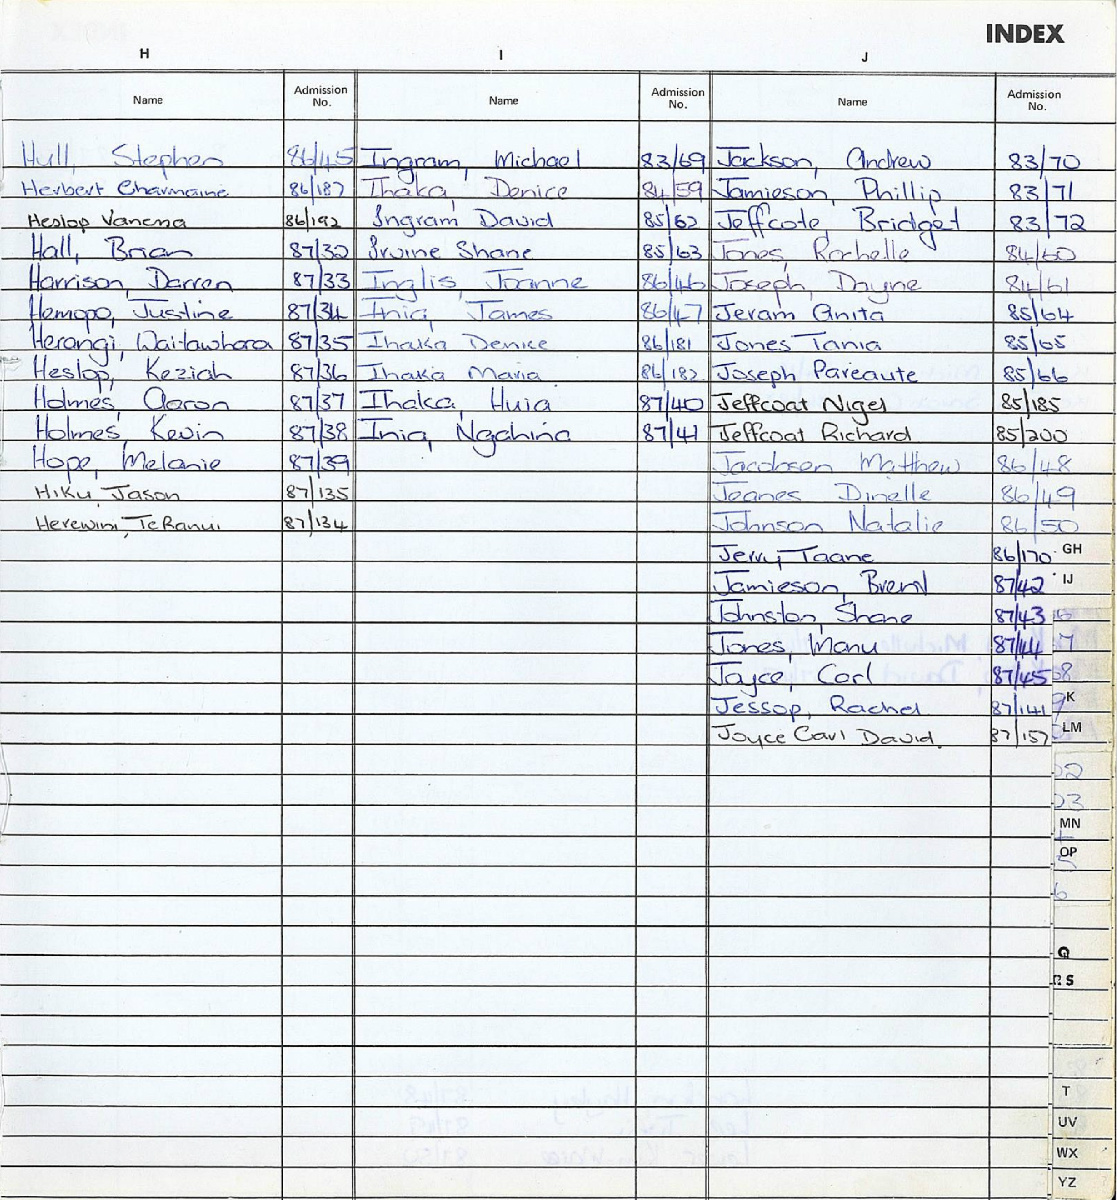 INDEX
H I J
Name Admission No. Name Admission No. Name Admission No.
Hull, Stephen 86/45 Ingram, Michael 83/69 Jackson, Andrew 83/70
Herbert Charmaine 86/187 Ihaka, Denice 84/59 Jamieson, Phillip 83/71
Heslop Vanessa 86/192 Ingram David 85/62 Jeffcote, Bridget 83/72
Hall, Brian 87/32 Irvine Shane 85/63 Jones, Rochelle 84/60
Harrison, Darren 87/33 Inglis, Joanne 86/46 Joseph, Dayne 84/61
Hemopo, Justine 87/34 Inia, James 86/47 Jeram Anita 85/64
Herangi, Waitawhara 87/35 Ihaka Denice 86/181 Jones Tania 85/65
Heslop, Keziah 87/36 Ihaka Maria 86/182 Joseph Pareaute 85/66
Holmes, Aaron 87/37 Ihaka, Huia 87/40 Jeffcoat Nigel 85/185
Holmes, Kevin 87/38 Inia, Ngahina 87/41 Jeffcoat Richard 85/200
Hope, Melanie 87/39 Jacobsen Matthew 86/48
Hiku Jason 87/135 Jeanes Dinelle 86/49
Herewini, Te Ranui 87/134 Johnson Natalie 86/50
Jerry, Taane 86/170 GH
Jamieson, Brent 87/42 IJ
Johnston, Shane 87/43
Jones, Manu 87/44 7
Jayce, Carl 87/45 8
Jessop, Rachel 87/141 K
Joyce Carl David. 87/157 LM
MN
OP
Q
RS
T
UV
WX
YZ